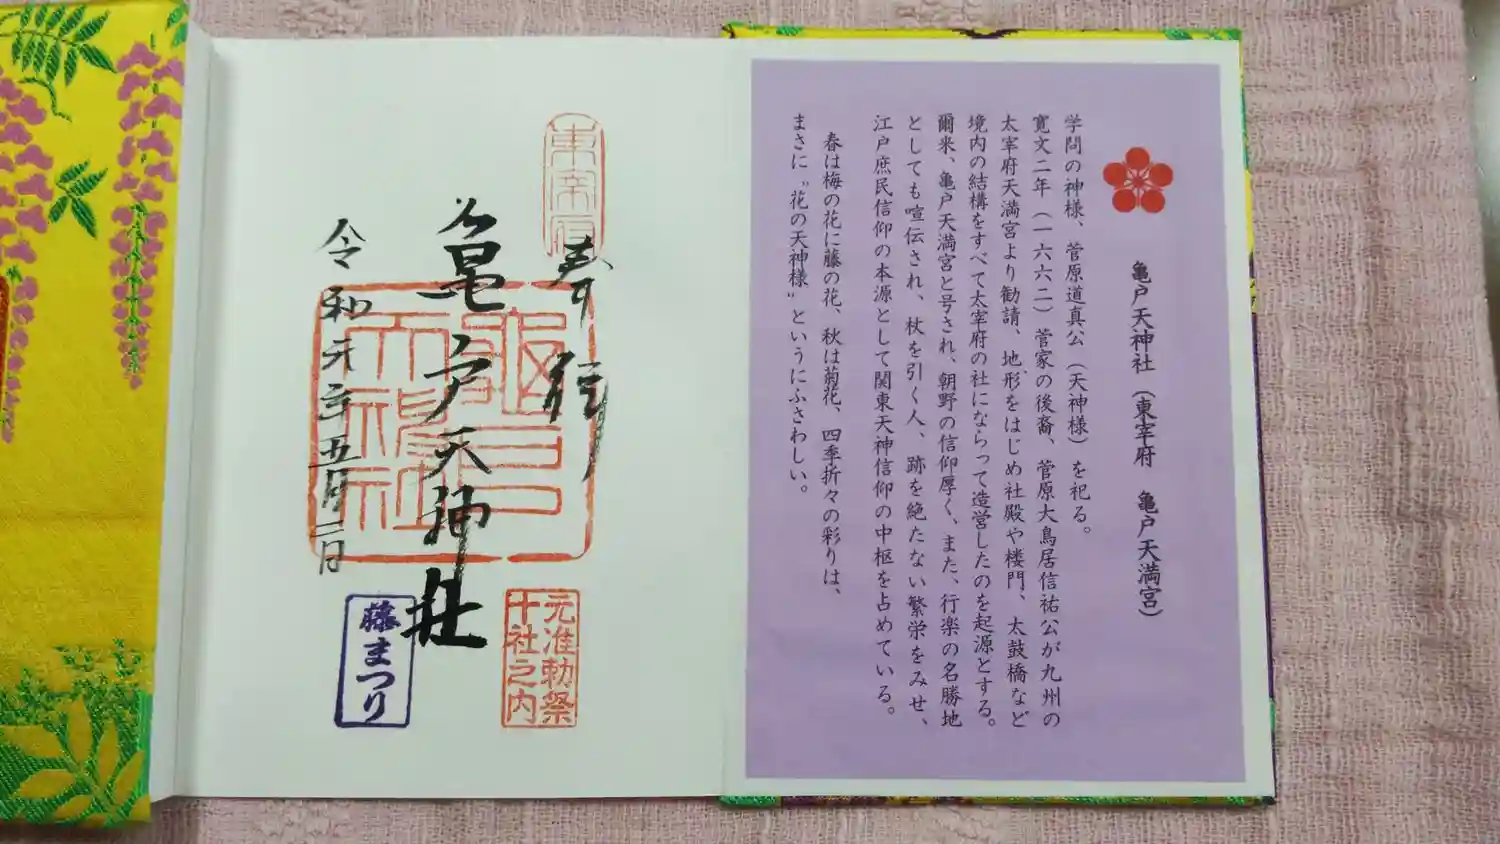 亀戸天神社（東宰府　亀戸天満宮）
学問の神様、菅原道真公（天神様）を祀る。
寛文二年（一六六二）菅家の後裔、菅原大鳥居信祐公が九州の
太宰府天満宮より勧請、地形をはじめ社殿や楼門、太鼓橋など
境内の結構をすべて太宰府の社にならって造営したのを起源とする。
爾来、亀戸天満宮と号され、朝野の信仰厚く、また、行楽の名勝地
としても喧伝され、杖を引く人、跡を絶たない繁栄をみせ、
江戸庶民信仰の本源として関東天神信仰の中枢を占めている。
春は梅の花に藤の花、秋は菊花、四季折々の彩りは、
まさに〝花の天神様〟というにふさわしい。
東宰府
奉拝
元准勅祭
十社之内
亀戸天神社
亀戸
天神社
令和元年五月二日
藤まつり